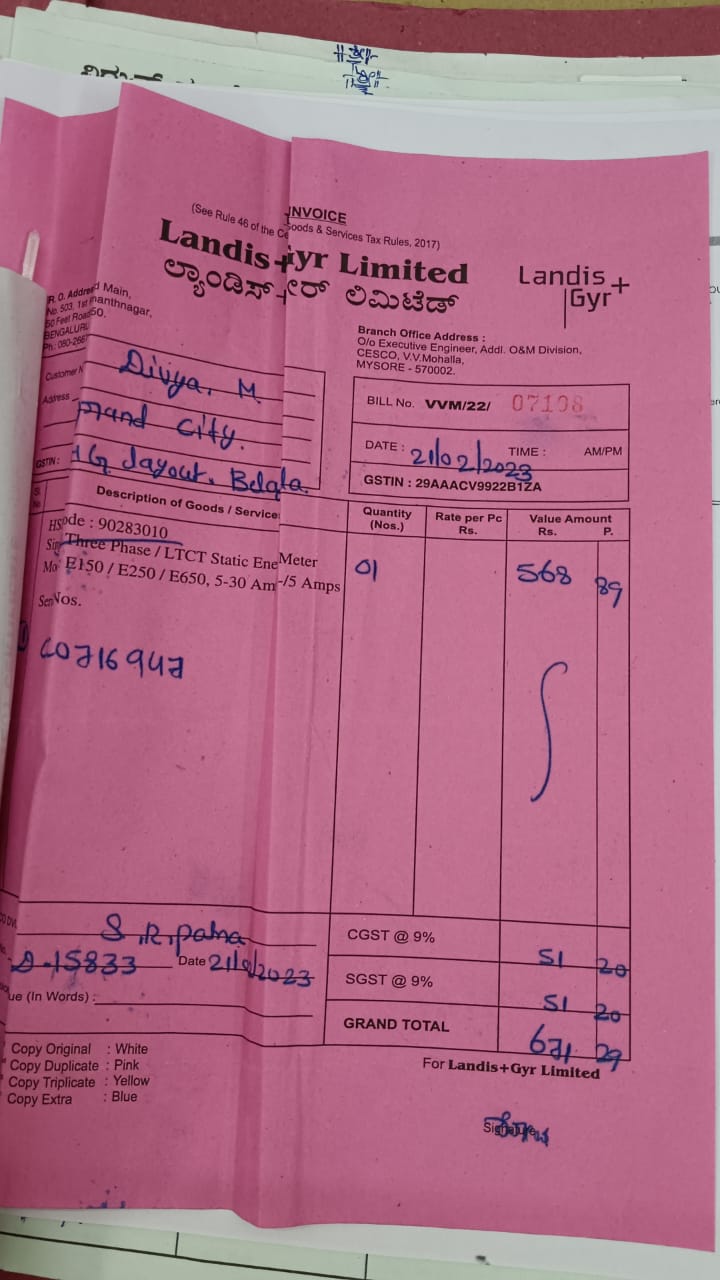 INVOICE
(See Rule 46 of the Ce Goods & Services Tax Rules, 2017)
Landis+Gyr Limited
ಲ್ಯಾಂಡಿಸ್+ ರ್ ಲಿಮಿಟೆಡ್
Landis+
Gyr
R. O. Address Main,
No. 503, 1st
50 Feet Road
BENGALURU 50.
Ph : 080-266
Branch Office Address :
O/o Executive Engineer, Addl. O&M Division,
CESCO, V.V.Mohalla,
MYSORE - 570002.
Customer N
Divya. M
Address
City.
GSTIN :
Layout.
BILL No. VVM/22/ 07198
DATE : 21/02/2023 TIME : AM/PM
GSTIN : 29AAACV9922B1ZA
Sl. No.
Description of Goods / Service
Quantity (Nos.)
Rate per Pc Rs.
Value Amount
Rs. P.
HS ode : 90283010
Sin Three Phase / LTCT Static Ene Meter
Mo E150 / E250 / E650, 5-30 Am -/5 Amps
01
568 89
Ser Nos.
CGST @ 9% 51 20
S.R.patna
15833 Date 21/ /2023
SGST @ 9% 51 20
ue (In Words) :
GRAND TOTAL 671 29
Copy Original : White
Copy Duplicate : Pink
Copy Triplicate : Yellow
Copy Extra : Blue
For Landis+Gyr Limited
Signature